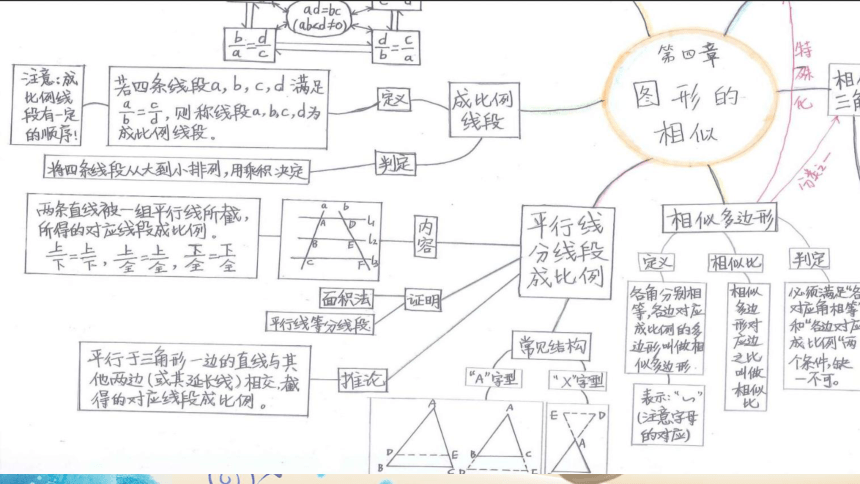 ad=bc
(abcd≠0)
b/a=d/c
d/b=c/a
第四章
图形的
相似
特殊化
相
三角
注意:成
比例线
段有一定
的顺序!
若四条线段a,b,c,d满足
a/b=c/d,则称线段a,b,c,d为
成比例线段。
定义
成比例
线段
将四条线段从大到小排列,用乘积决定
判定
两条直线被一组平行线所截,
所得的对应线段成比例。
上/下=上/下,上/全=上/全,下/全=下/全
a b
A D l1
B E l2
C F l3
内容
平行线
分线段
成比例
面积法
证明
平行线等分线段
平行于三角形一边的直线与其
他两边(或其延长线)相交,截
得的对应线段成比例。
推论
常见结构
"A"字型
"X"字型
A
D E
B C
A
B C
D E
E D
A
相似多边形
定义
相似比
判定
各角分别相
等,各边对应
成比例的多
边形叫做相
似多边形.
表示:"∽"
(注意字母
的对应)
相似
多边
形对
应边
之比
叫做
相似
比
必须满足"各
对应角相等"
和"各边对应
成比例"两
个条件,缺
一不可。